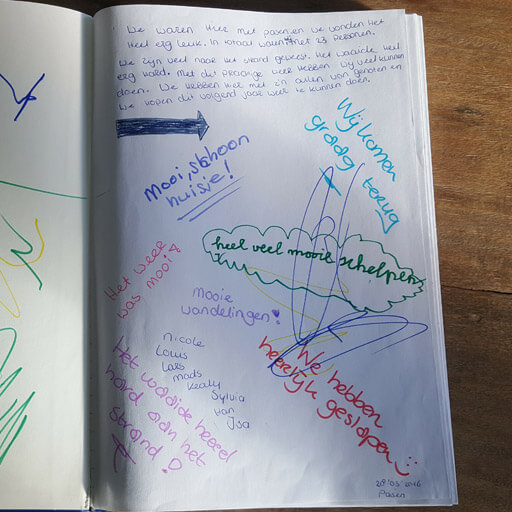 We waren hier met pasen en we vonden het
heel erg leuk. In totaal waren we met 23 personen.
We zijn veel naar het strand geweest. Het waaide heel
erg hard. Met dit prachtige weer hebben wij veel kunnen
doen. We hebben hier met z'n allen van genoten en
we hopen dit volgend jaar weer te kunnen doen.
Wij komen
graag terug
Mooi, schoon
huisje!
heel veel mooie schelpen
Het weer
was mooi!
mooie
wandelingen!
nicole
Louis
Lars
mads
Kealy
Sylvia
Han
Isa
Het waaide heeel
hard aan het
strand!
We hebben
heerlijk geslapen
28'03'2016
Pasen